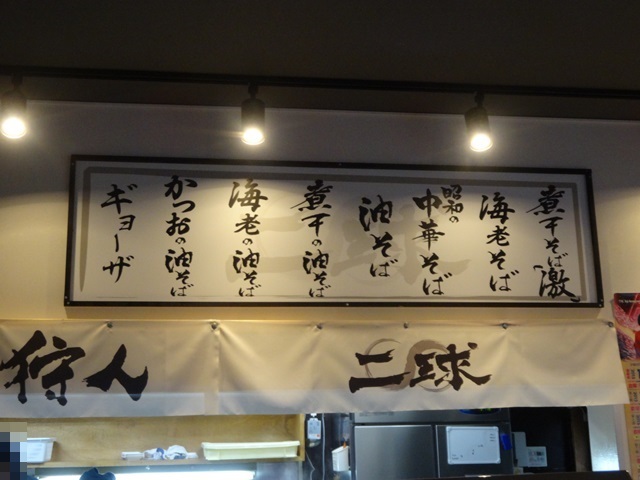 煮干そば 激
海老そば
昭和の中華そば
油そば
煮干の油そば
海老の油そば
かつおの油そば
ギョーザ
狩人
二球